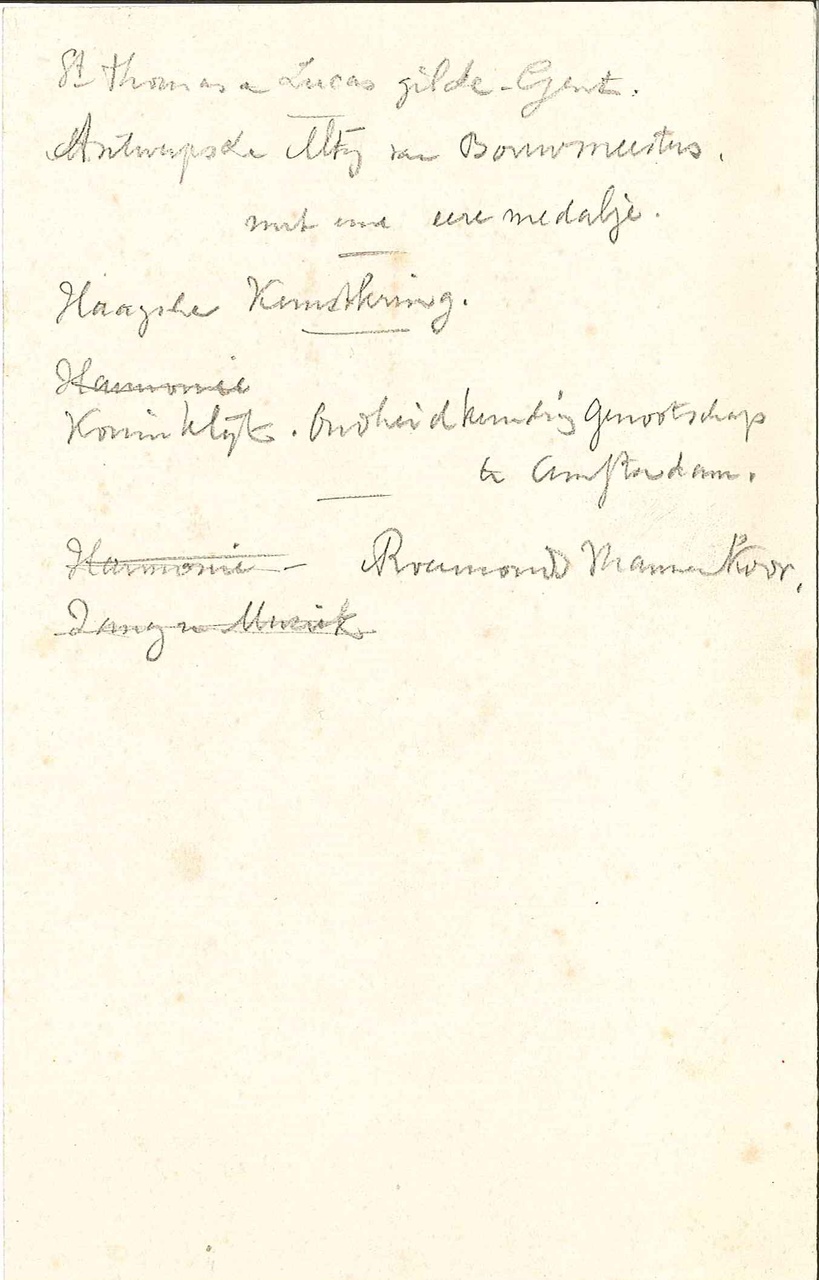 St Thomas en Lucas gilde - Gent.
Antwerpsche Mtij van Bouwmeesters.
met eene eere medalje.
Haagsche Kunstkring.
Harmonie
Koninklijk. Oudheidkundig Genootschap
te Amsterdam.
Harmonie - Roermonds Mannen Koor,
Zang en Muziek